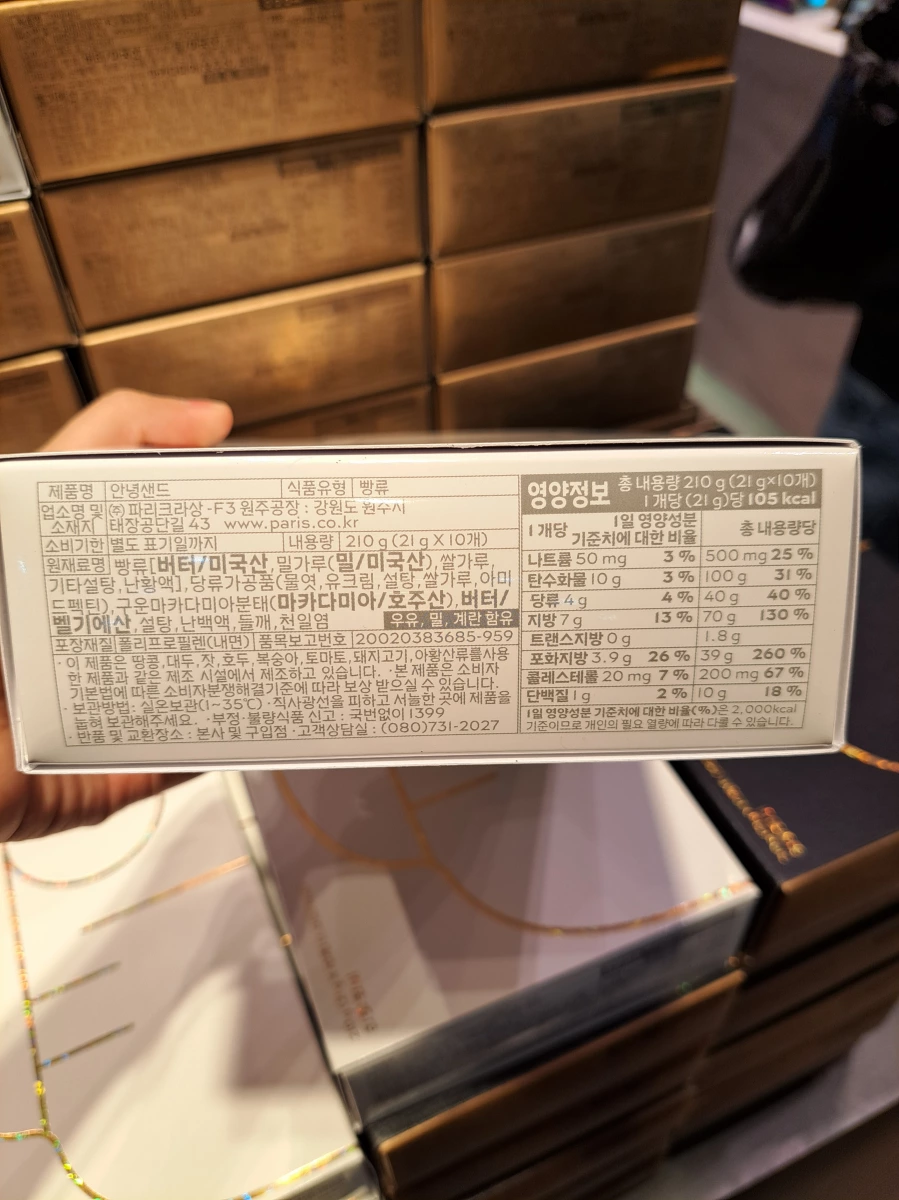 제품명 안녕샌드 식품유형 빵류
업소명 및 소재지 ㈜파리크라상-F3 원주공장 : 강원도 원주시
태장공단길 43 www.paris.co.kr
소비기한 별도 표기일까지 내용량 210 g (21 g X 10개)
원재료명 빵류[버터/미국산, 밀가루(밀/미국산), 쌀가루,
기타설탕, 난황액], 당류가공품(물엿, 유크림, 설탕, 쌀가루, 아미
드펙틴), 구운마카다미아분태(마카다미아/호주산), 버터/
벨기에산, 설탕, 난백액, 들깨, 천일염 우유, 밀, 계란 함유
포장재질 폴리프로필렌(내면) 품목보고번호 20020383685-959
· 이 제품은 땅콩, 대두, 잣, 호두, 복숭아, 토마토, 돼지고기, 아황산류를사용
한 제품과 같은 제조 시설에서 제조하고 있습니다. · 본 제품은 소비자
기본법에 따른 소비자분쟁해결기준에 따라 보상 받으실 수 있습니다.
· 보관방법: 실온보관(1~35℃) · 직사광선을 피하고 서늘한 곳에 제품을
눕혀 보관해주세요. · 부정·불량식품 신고 : 국번없이 1399
· 반품 및 교환장소 : 본사 및 구입점 · 고객상담실 : (080)731-2027
영양정보 총 내용량 210 g (21 g×10개)
1개당 (21 g)당 105 kcal
1개당 1일 영양성분 기준치에 대한 비율 총 내용량당
나트륨 50 mg 3 % 500 mg 25 %
탄수화물 10 g 3 % 100 g 31 %
당류 4 g 4 % 40 g 40 %
지방 7 g 13 % 70 g 130 %
트랜스지방 0 g 1.8 g
포화지방 3.9 g 26 % 39 g 260 %
콜레스테롤 20 mg 7 % 200 mg 67 %
단백질 1 g 2 % 10 g 18 %
1일 영양성분 기준치에 대한 비율(%)은 2,000kcal
기준이므로 개인의 필요 열량에 따라 다를 수 있습니다.